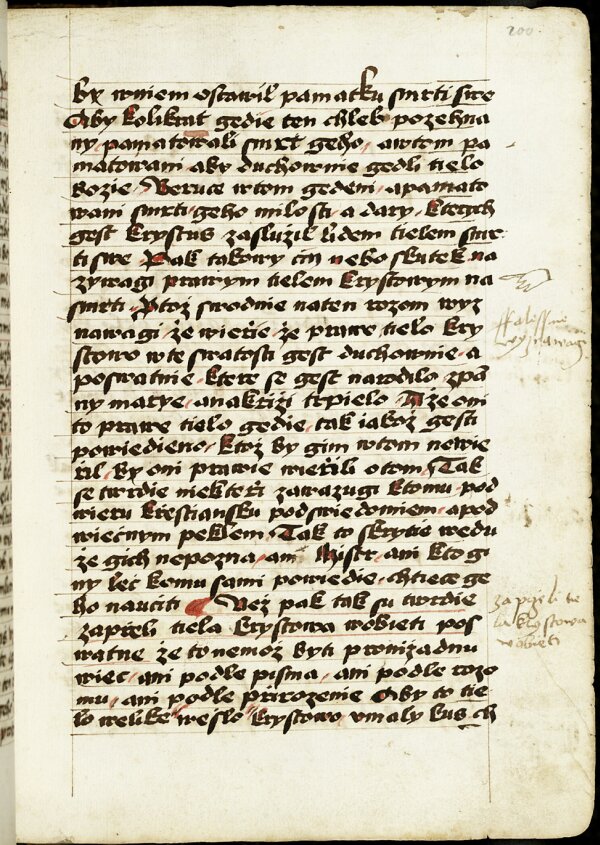 200.
by wniem ostawil pamatku smrti swe
Aby kolikrat gedie ten chleb pozehna
ny pamatowali smrt geho, awtom pa
matowani aby duchownie gedli tielo
bozie. Veruce wtom gedeni, apamato
wani smrti geho milosti a dary, kterych
gest krystus zaslužil lidem tielem smr
ti swe Pak takowy čin nebo skutek na
zywagi prawym tielem krystowym na
smrti. Ptož swodnie naten rozom wyz
nawagi, že wieřie, že prawe tielo kry
stowo wte swatosti gest duchownie, a
poswatnie, ktere se gest narodilo zpan
ny marye, anakřiži trpielo, A že oni
to prawe tielo gedie, tak iakož gest
powiedieno, ktož by gim wtom newie
ril, by oni prawie wieřili otom, Tak
se twrdie niekteři zawazugi ktomu pod
wieru křestiansku podswiedomiem, apod
wiečnym peklem, Tak to skrytie wedu
že gich nepozna, ani Mistr, ani kto gi
ny leč komu sami powiedie, chtiece ge
ho naučiti Než pak tak su twrdie
zapřeli tiela krystowa wobieti pos
watne že tonemož byti pronižadnu
wiec, ani podle pisma, ani podle rozo
mu, ani podle přirozenie Aby to tie
lo welike wešlo krystowo vmaly kus ch
ffalessnie
wyznawagi
zaprzeli te
la krystowa
wobieti